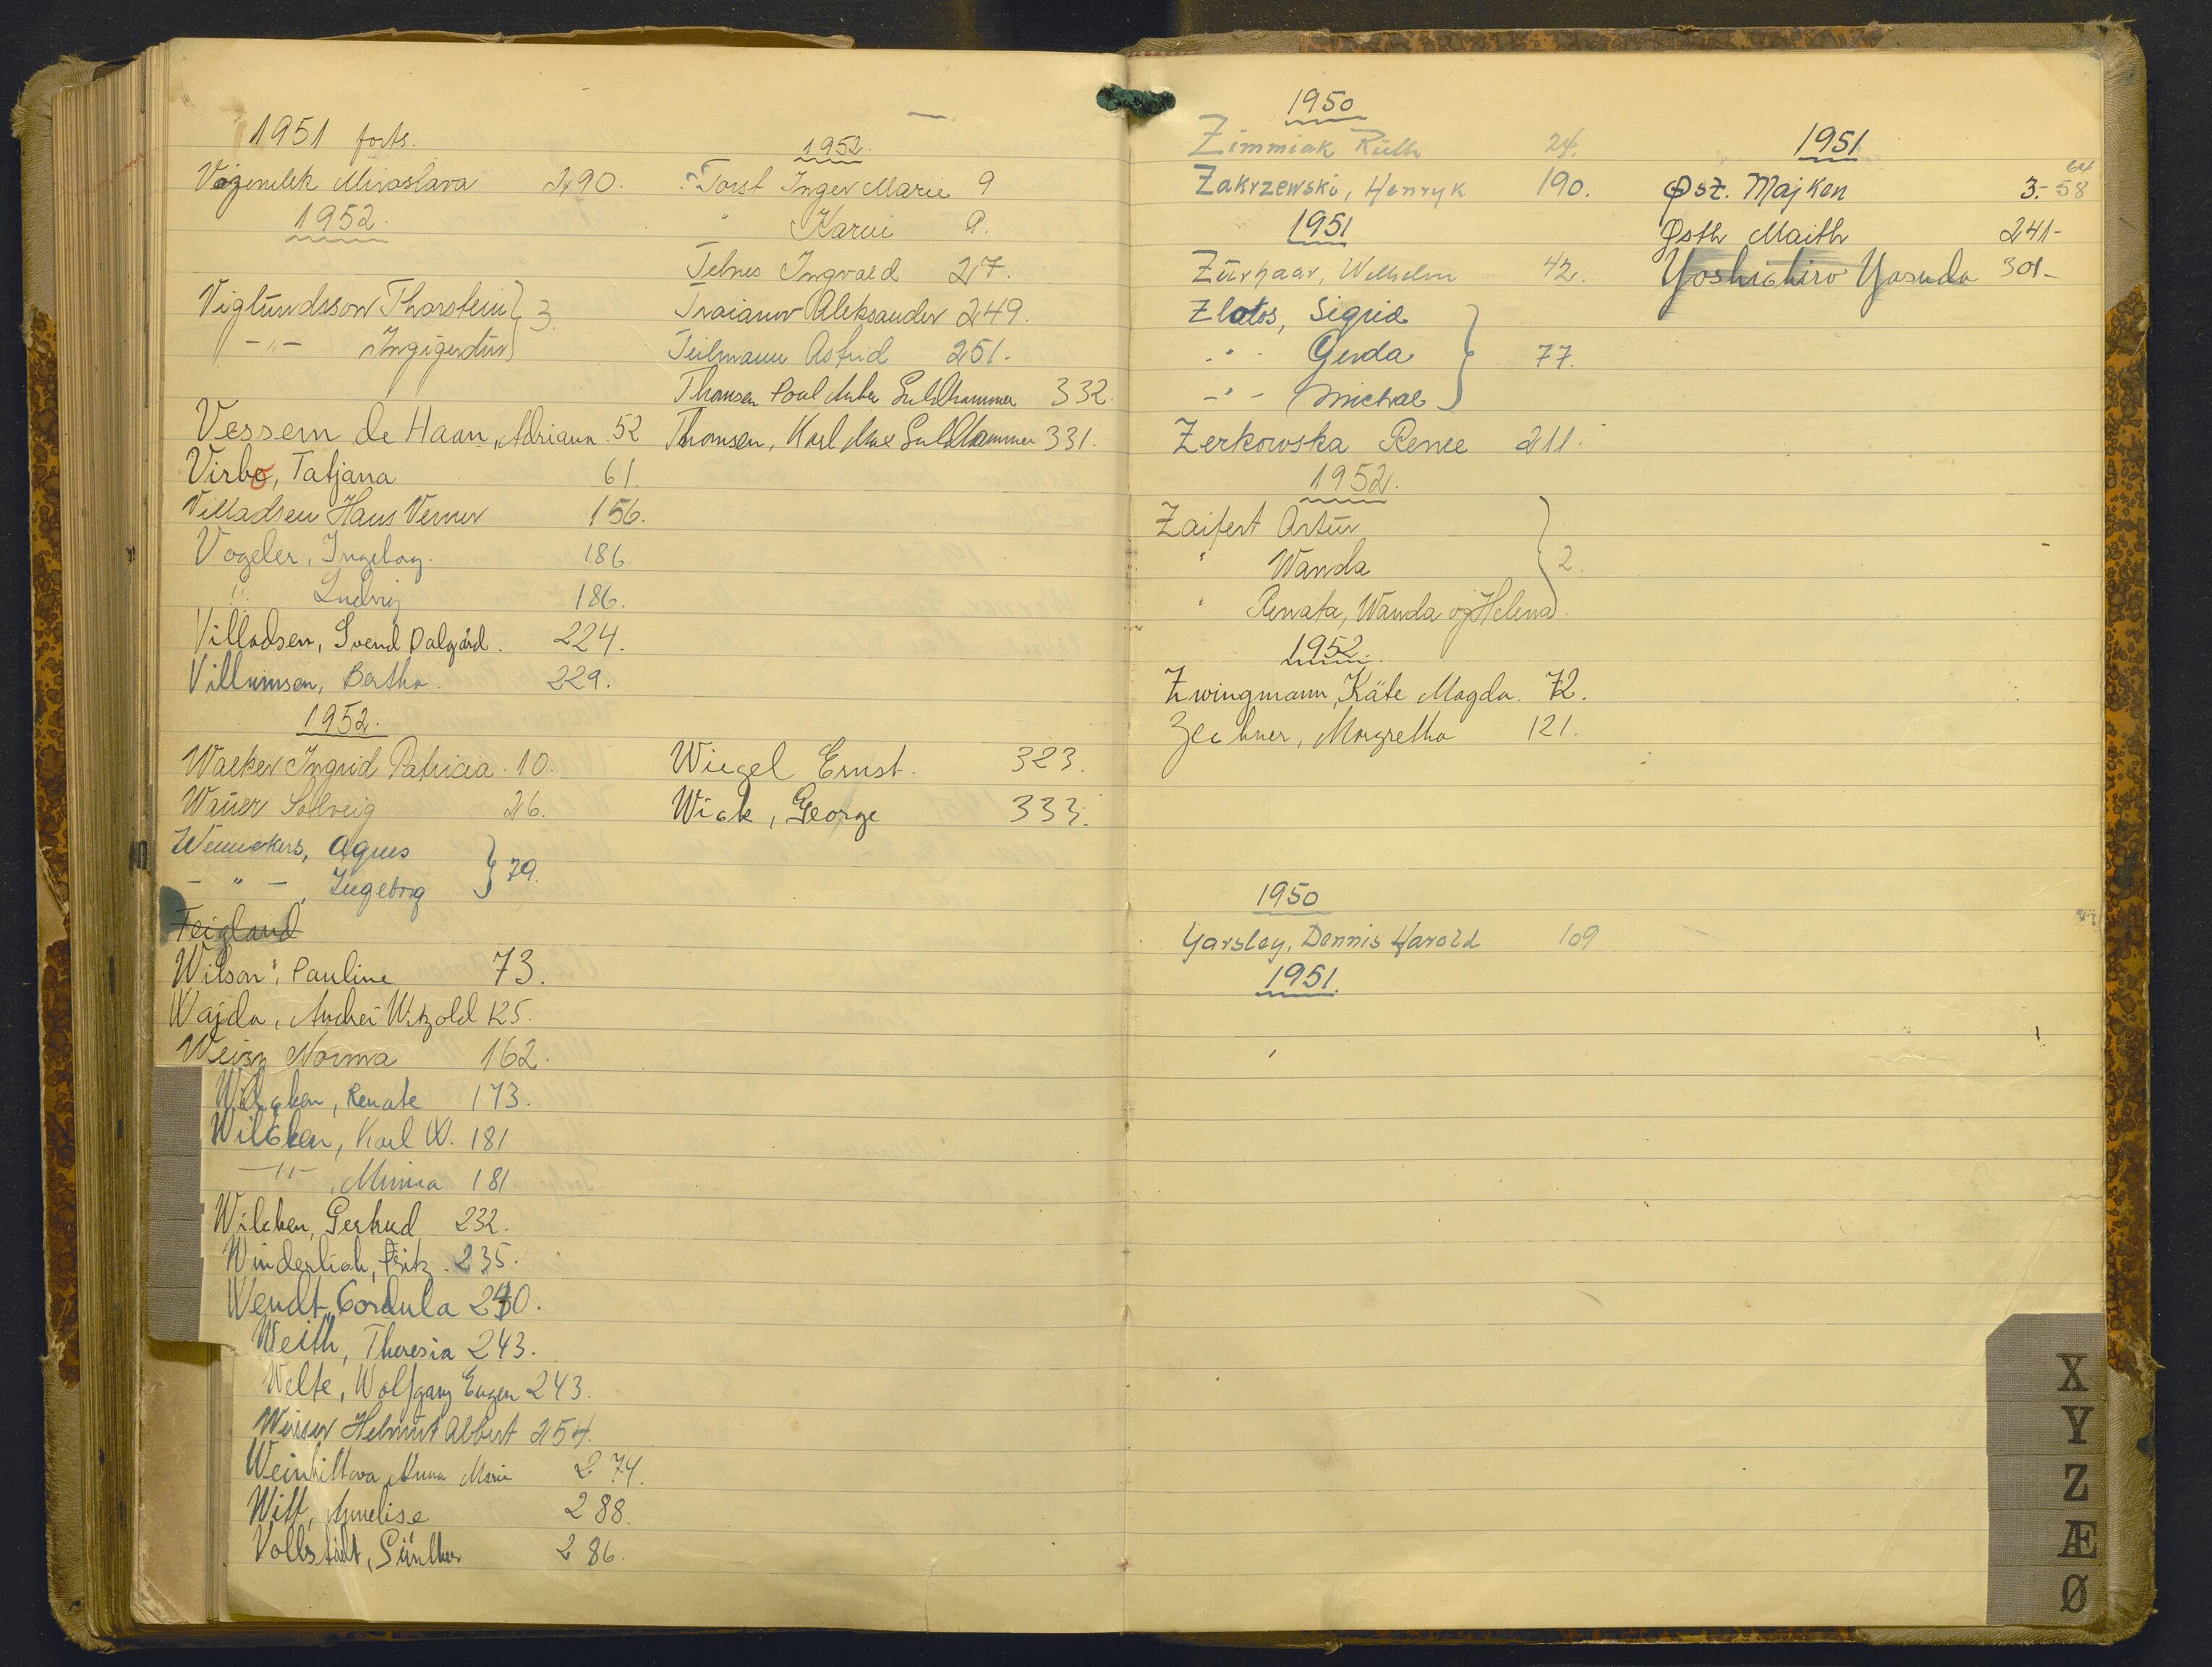 1951 forts.
Miroslava 290.
1952.
Viglundsson Thorstein } 3.
-"- Ingigerdur
Vessem de Haan, Adriana. 52
Virbo, Tatjana 61.
Villadsen Hans Verner 156.
Vogeler, Ingeborg. 186.
" Ludvig 186.
Villadsen, Svend Dalgård. 224.
Villumsen, Bertha. 229.
1952.
Walker Ingrid Patricia. 10.
Wauer Solveig 26.
Agnes
- " -, Ingeborg } 79.
Feigland
Wilson, Pauline 73.
Wajda, Andrei Witzold 125.
Weisz Norma 162.
Wilcken, Renate 173.
Wilcken, Karl W. 181
-"-, Minna 181.
Wilcken, Gertrud 232.
Winderlich, Fritz. 235.
Wendt, Cordula 240.
Weith, Theresia 243.
Welte, Wolfgang Eugen 243.
Helmut Albert 254.
Anna Marie 274.
Witt, Annelise 288.
Vollstädt, Günther 286.
1952.
Torst Inger Marie 9
" Karin 9.
Telnes Ingvald 27.
Traianov Aleksander 249.
Teilmann Astrid 251.
Thomsen Poul Anker Guldhammer 332.
Thomsen, Karl Max Guldhammer 331.
Wiegel Ernst. 323.
Wick, George 333.
1950
Zimmiak Ruth 24.
Zakrzewski, Henryk 190.
1951
Zürhaar, Wilhelm 42.
Zlatos, Sigrid
-"- Gerda } 77.
-"- Michal
Zerkowska Renee 211.
1952.
Zaifert Artur
" Wanda } 2.
" Renata, Wanda og Helena.
1952.
Zwingmann, Käte Magda. 72.
Zechner, Margretha 121.
1950
Yarsley, Dennis Harold 109
1951.
1951
64
Øst. Majken 3.- 58
Østh Maith 241-
Yoshichiro Yasuda 301-
X
Y
Z
Æ
Ø